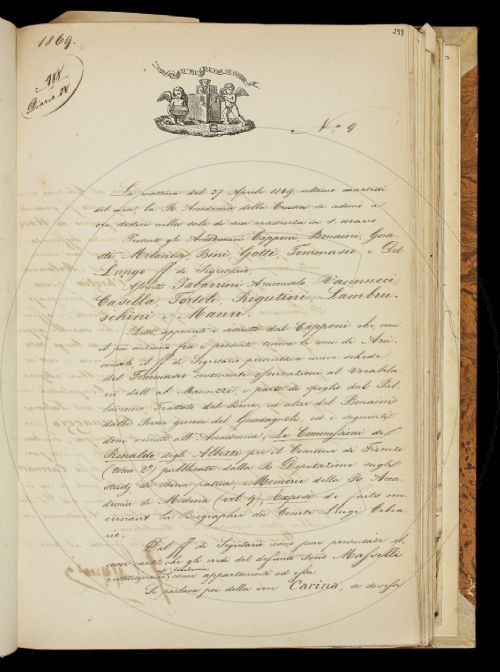 1869.
298
Diario IV
N.° 9
La mattina del 27 Aprile 1869, ultimo martedì
del mese, la R. Accademia della Crusca si adunò a
ore dodici nella sala di sua residenza in S. Marco.
Presenti gli Accademici Capponi, Bonaini, Gua-
sti, Milanesi, Bini, Gotti, Tommaseo e Del
Lungo ff. di Segretario.
Assenti Tabarrini Arciconsolo, Vannucci,
Casella, Tortoli, Rigutini, Lambru-
schini e Mauri.
Letto, approvato e dal Capponi che, come
il più anziano fra i presenti, teneva le veci di Arci-
consolo, il ff. di Segretario presentava nuove schede
del Tommaseo contenenti osservazioni al Vocabola-
rio dell' ab. Manuzzi, e parte di spoglio dal
Trattato del ed altre del Bonaini
dalle Poesie del Guadagnoli, ed i seguenti
doni venuti all' Accademia, Le Commissioni di
Rinaldo degli Albizzi per il Comune di Firenze
(tomo 2°) pubblicate dalla R. Deputazione sugli
studj di storia patria, Memorie della R. Acca-
demia di Modena (vol. 9), di fatti con-
cernenti la Biographie du Comte Luigi Cibra-
rio.
Dal ff. di Segretario sono pure presentate al-
cune carte che gli eredi del defunto Socio Masselli
all'Accademia come appartenenti ad essa.
Si parlava poi della voce Carina, se dovesse